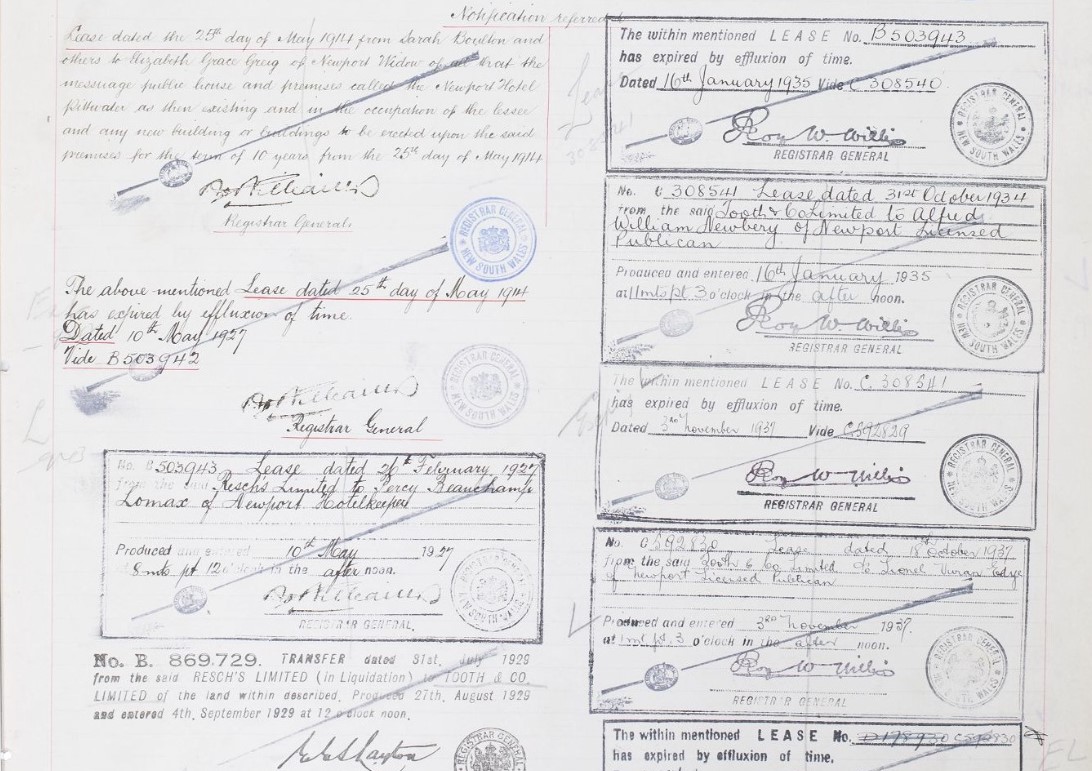 Notification referred
Lease dated the 25th day of May 1914 from Sarah Boulton and
others to Elizabeth Grace Greig of Newport Widow of all that the
messuage public house and premises called the Newport Hotel
Pittwater as then existing and in the occupation of the lessee
and any new building or buildings to be erected upon the said
premises for the term of 10 years from the 25th day of May 1914
Registrar General
REGISTRAR GENERAL
NEW SOUTH WALES
The above mentioned Lease dated 25th day of May 1914
has expired by effluxion of time.
Dated 10th May 1927
Vide B503942
REGISTRAR GENERAL
NEW SOUTH WALES
Registrar General
No. B 503943 Lease dated 26th February 1927
from the said Reschs Limited to Percy Beauchamp
Lomax of Newport Hotelkeeper
Produced and entered 10th May 1927
at 8 mts pt 12 o'clock in the after noon.
REGISTRAR GENERAL.
No. B. 869.729. TRANSFER dated 31st. July 1929
from the said RESCH'S LIMITED (in Liquidation) to TOOTH & CO.
LIMITED of the land within described. Produced 27th. August 1929
and entered 4th. September 1929 at 12 o'clock noon.
REGISTRAR GENERAL
The within mentioned LEASE No. B503943
has expired by effluxion of time.
Dated 16th January 1935 Vide C 308540.
Roy W. Willis
REGISTRAR GENERAL
REGISTRAR GENERAL
NEW SOUTH WALES
No. C 308541 Lease dated 31st October 1934
from the said Tooth & Co Limited to Alfred
William Newbery of Newport Licensed
Publican
Produced and entered 16th January 1935
at 11 mts pt 3 o'clock in the after noon.
Roy W. Willis
REGISTRAR GENERAL
REGISTRAR GENERAL
NEW SOUTH WALES
The within mentioned LEASE No. C 308541
has expired by effluxion of time.
Dated 3rd November 1937 Vide C592829
Roy W Willis
REGISTRAR GENERAL
No. C592830 Lease dated 18th October 1937
from the said Tooth & Co Limited to Lionel Vivian Edye
of Newport Licensed Publican
Produced and entered 3rd November 1937.
at 1 mt pt. 3 o'clock in the after noon.
Roy W Willis
REGISTRAR GENERAL
The within mentioned LEASE No. D178930 C592830
has expired by effluxion of time.